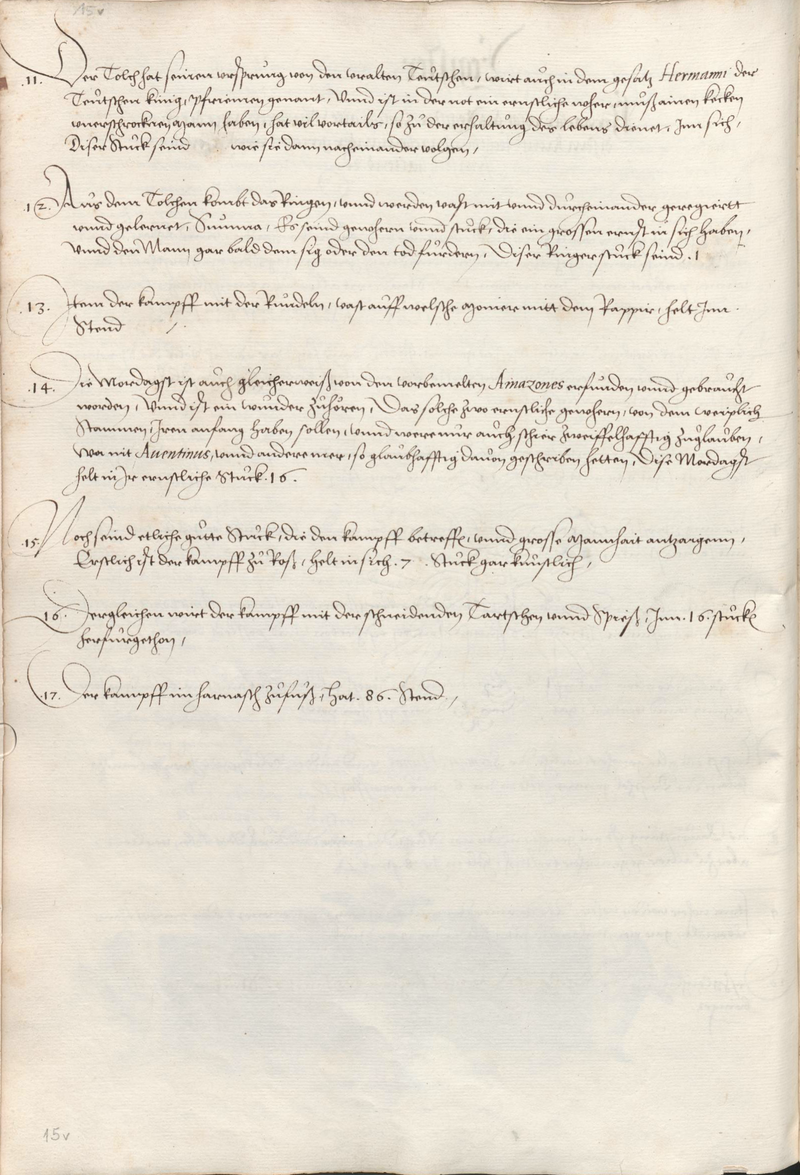 15v
.11. Der Tolch hat seinen ursprung von den uralten Teutschen, wirt auch in dem gesatz Hermanni der
Teutschen künig, pfriemen genant, Unnd ist in der not ein ernstliche woher, muß ainen kecken
unerschrocknen Mann haben, hat vil vortails, so zu der erhaltung des lebens dienet, Inn sich,
Diser Stuck seind wie sie dann nacheinander volgen,
.12. Aus dem Tolchen kombt das Ringen, unnd werden vast mit unnd durcheinander geregiertt
unnd gelernet, Summa, Es seind gewohern unnd stuck, die ein grossen ernst in sich haben,
Unnd den Mann gar bald dem sig oder den tod furdern, Diser Ringer stuck seind . 1
.13. Item der kampff mit der Rundeln, vast auff welsche Monier mitt dem Rappir, helt Inn
Stend
.14. Die Mordagst ist auch gleicherweiß von den vorbemelten Amazones erfunden unnd gebraucht
worden, Unnd ist ein wunder zuhören, Das solche zwo ernstliche gewohern, von dem weiplich
Stammen, Iren anfang haben sollen, unnd were nur auch schier zweiffelhafftig zuglauben,
Wo nit Auentinus, unnd andere mer, so glaubhafftig dauon geschriben hetten, Dise Mordagst
helt in Ir ernstliche Stuck .16.
.15. Noch seind etliche gutte Stuck, die den kampff betreffen, unnd grosse Mannhait antzaigenn,
Erstlich ist der kampff zu Roß, helt in sich .7. Stuck gar künstlich,
.16. Dergleichen wirt der kampff mit der schneidenden Tartschen unnd Spieß, Inn .16. stucken
herfürgethon,
.17. Der kampff im harnasch zufuß, hat .86. Stend,
15v